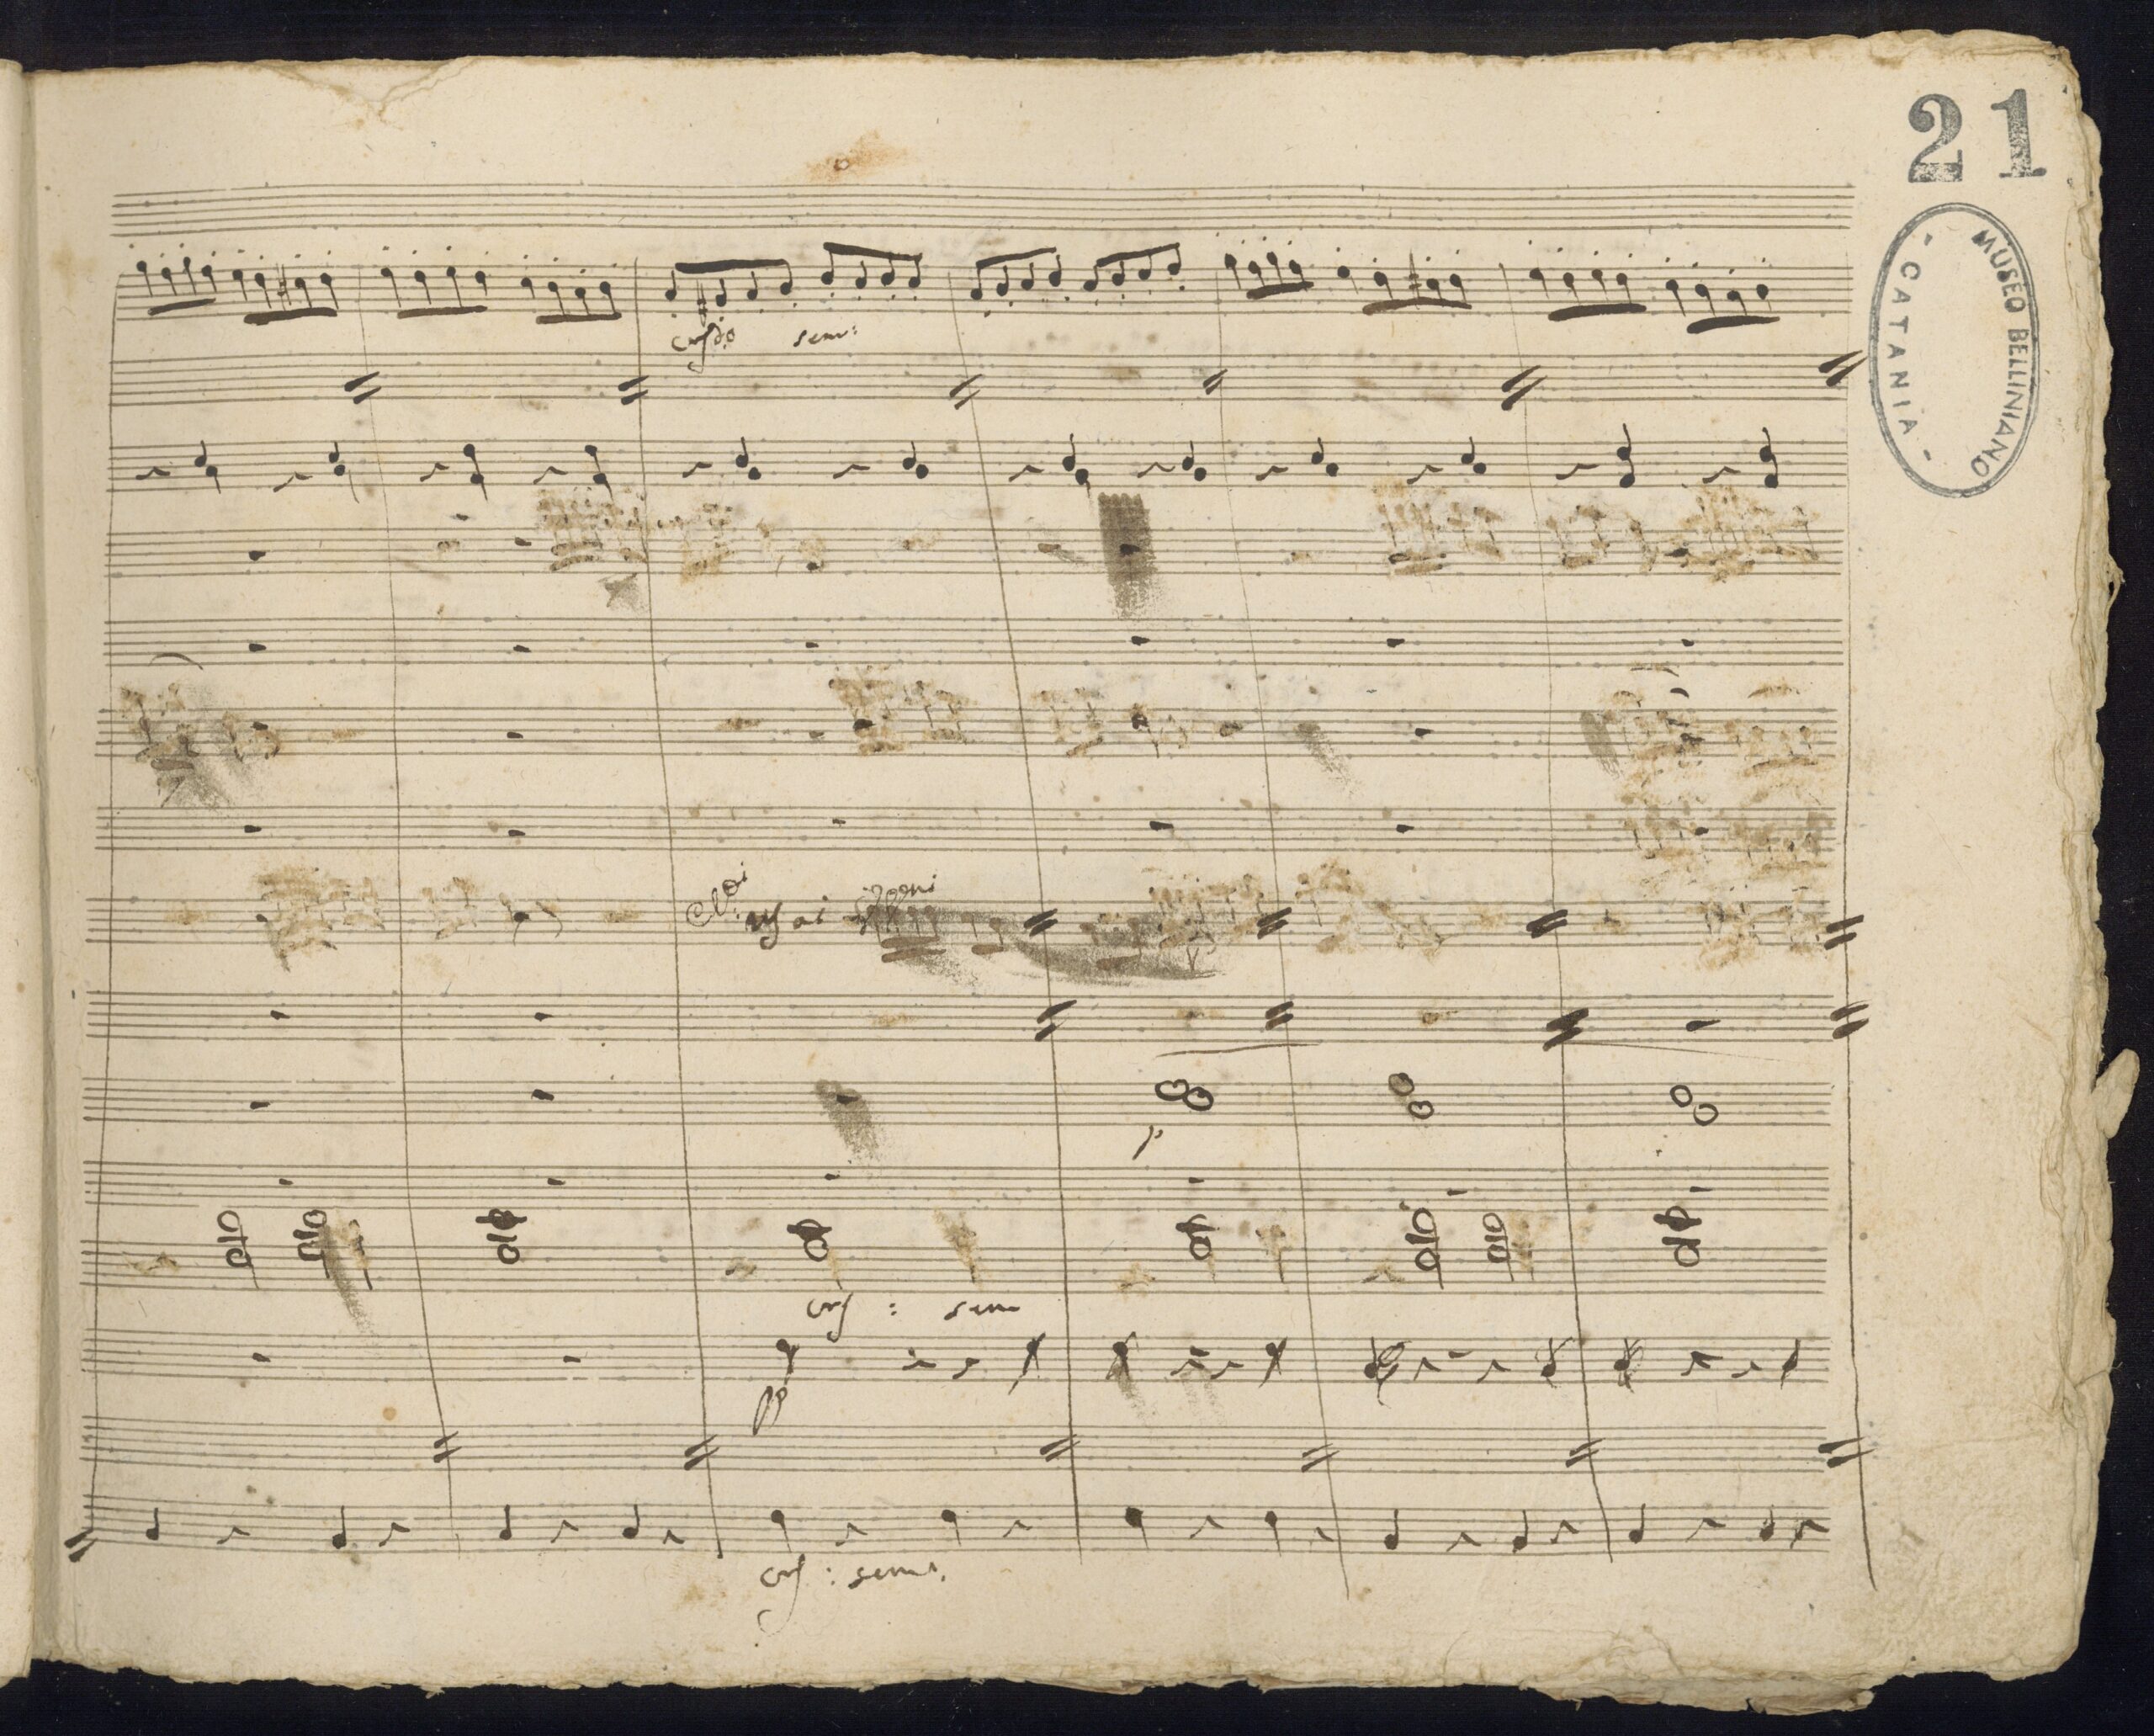 21
MUSEO BELLINIANO
- CATANIA -
cres: sem:
p
cres: sem
pp
cres: sem: